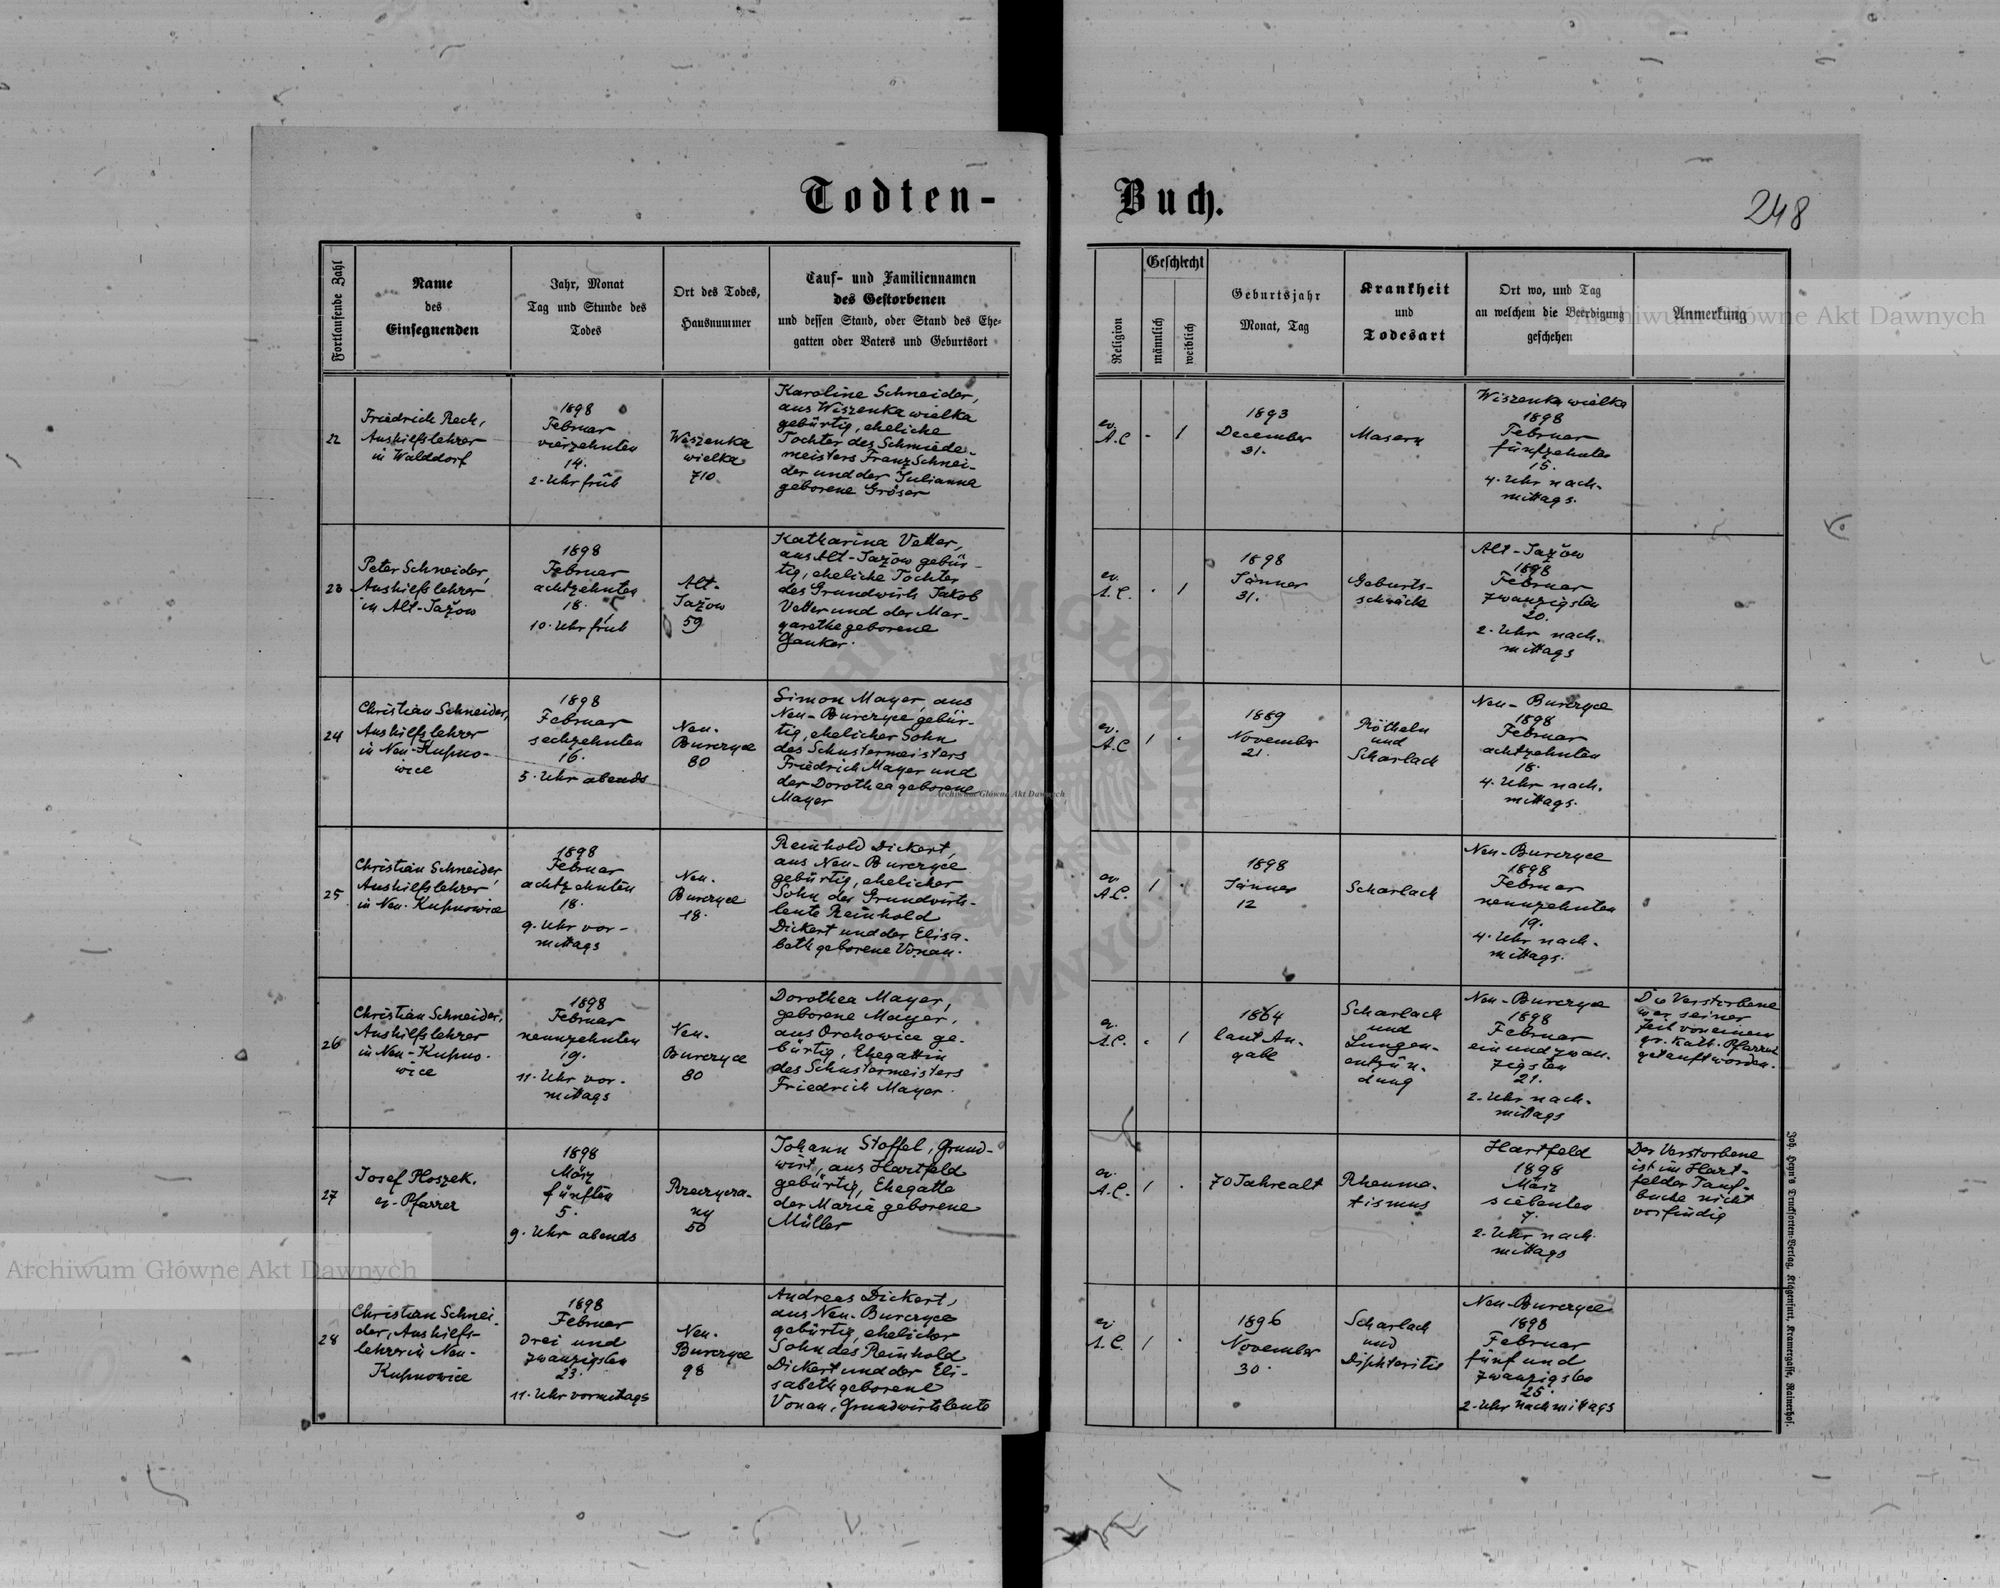 Todten-Buch.
248
Fortlaufende Zahl
Name
des
Einsegnenden
Jahr, Monat
Tag und Stunde des
Todes
Ort des Todes,
Hausnummer
Tauf- und Familiennamen
des Gestorbenen
und dessen Stand, oder Stand des Ehe-
gatten oder Vaters und Geburtsort
Religion
Geschlecht
männlich
weiblich
Geburtsjahr
Monat, Tag
Krankheit
und
Todesart
Ort wo, und Tag
an welchem die Beerdigung
geschehen
Anmerkung
22
Friedrich Rech,
Aushilfslehrer
in Walddorf
1898
Februar
vierzehnten
14.
2. Uhr früh
Wiszenka
wielka
710
Karoline Schneider,
aus Wiszenka wielka
gebürtig, eheliche
Tochter des Schmiede-
meisters Franz Schnei-
der und der Julianna
geborene Gröser
ev.
A.C
-
1
1893
December
31.
Masern
Wiszenka wielka
1898
Februar
fünfzehnten
15.
4. Uhr nach-
mittags.
23
Peter Schneider,
Aushilfslehrer
in Alt-Jażow
1898
Februar
achtzehnten
18.
10. Uhr früh
Alt-
Jażow
59
Katharina Vetter,
aus Alt-Jażow gebür-
tig, eheliche Tochter
des Grundwirts Jakob
Vetter und der Mar-
garethe geborene
Ganker.
ev.
A.C.
-
1
1898
Jänner
31.
Geburts-
schwäche
Alt-Jażow
1898
Februar
zwanzigsten
20.
2. Uhr nach-
mittags
24
Christian Schneider,
Aushilfslehrer
in Neu-Kupno-
wice
1898
Februar
sechzehnten
16.
5. Uhr abends
Neu-
Burczyce
80
Simon Mayer, aus
Neu-Burczyce gebür-
tig, ehelicher Sohn
des Schustermeisters
Friedrich Mayer und
der Dorothea geborene
Mayer
ev.
A.C
1
-
1889
November
21.
Rötheln
und
Scharlach
Neu-Burczyce
1898
Februar
achtzehnten
18.
4. Uhr nach-
mittags.
25
Christian Schneider,
Aushilfslehrer
in Neu-Kupnowice
1898
Februar
achtzehnten
18.
9. Uhr vor-
mittags
Neu-
Burczyce
18.
Reinhold Dickert,
aus Neu-Burczyce
gebürtig, ehelicher
Sohn des Grundwirts-
leute Reinhold
Dickert und der Elisa-
beth geborene Vonau.
ev.
A.C.
1
-
1898
Jänner
12
Scharlach
Neu-Burczyce
1898
Februar
neunzehnten
19.
4. Uhr nach-
mittags.
26
Christian Schneider,
Aushilfslehrer
in Neu-Kupno-
wice
1898
Februar
neunzehnten
19.
11. Uhr vor-
mittags
Neu-
Burczyce
80
Dorothea Mayer,
geborene Mayer,
aus Orchowice ge-
bürtig, Ehegattin
des Schustermeisters
Friedrich Mayer.
ev.
A.C.
-
1
1864
laut An-
gabe
Scharlach
und
Lungen-
entzün-
dung
Neu-Burczyce
1898
Februar
ein und zwan-
zigsten
21.
2. Uhr nach-
mittags
Die Verstorbene
war seiner
Zeit von einem
gr. kath. Pfarrer
getauft worden.
27
Josef Ploszek,
ev. Pfarrer
1898
März
fünften
5.
9. Uhr abends
Rzeczycza-
ny
50
Johann Stoffel, Grund-
wirt, aus Hartfeld
gebürtig, Ehegatte
der Maria geborene
Müller
ev.
A.C.
1
-
70 Jahre alt
Rheuma-
tismus
Hartfeld
1898
März
siebenten
7.
2. Uhr nach-
mittags
Der Verstorbene
ist im Hart-
felder Tauf-
buche nicht
vorfindig
28
Christian Schnei-
der, Aushilfs-
lehrer in Neu-
Kupnowice
1898
Februar
drei und
zwanzigsten
23.
11. Uhr vormittags
Neu-
Burczyce
98
Andreas Dickert,
aus Neu-Burczyce
gebürtig, ehelicher
Sohn des Reinhold
Dickert und der Eli-
sabeth geborene
Vonau, Grundwirtsleute
ev.
A.C.
1
-
1896
November
30.
Scharlach
und
Diphteritis
Neu-Burczyce
1898
Februar
fünf und
zwanzigsten
25.
2. Uhr nachmittags
Joh. Heyn's Drucksorten-Verlag, Klagenfurt, Kramergasse, Rainerhof.
Archiwum Główne Akt Dawnych
Archiwum Główne Akt Dawnych
Archiwum Główne Akt Dawnych
ARCHIWUM GŁÓWNE AKT DAWNYCH